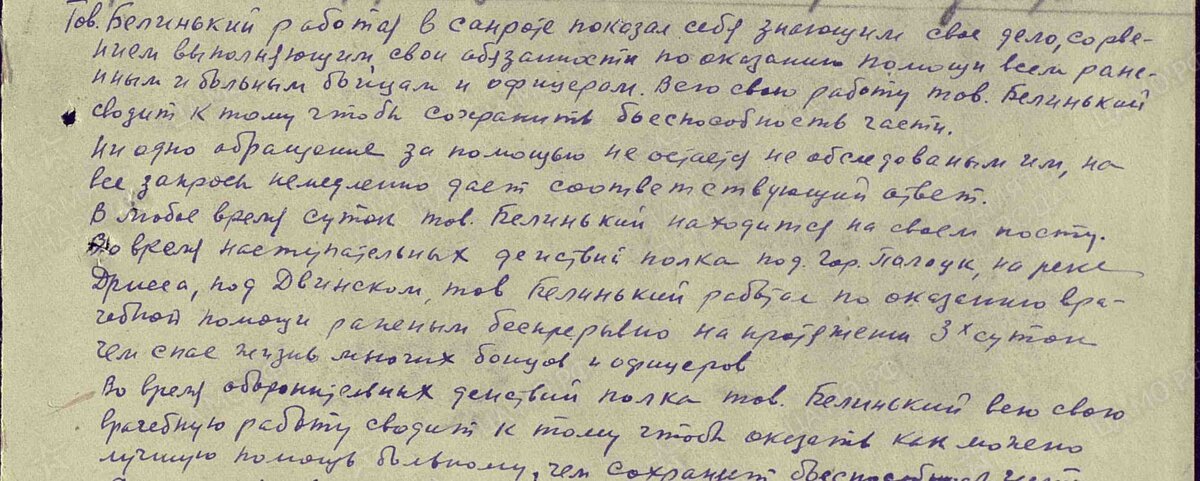 Тов. Белинький работая в санроте показал себя знающим свое дело, с орве-
нием выполняющим свои обязанности по оказанию помощи всем ране-
нным и больным бойцам и офицерам. Всю свою работу тов. Белинький
сводит к тому чтобы сохранить боеспособность части.
Ни одно обращение за помощью не остается не обследованым им, на
все запросы немедленно дает соответствующий ответ.
В любое время суток тов. Белинький находится на своем посту.
Во время наступательных действий полка под. гор. Палоцк, на реке
Дрисса, под Двинском, тов Белинький работал по оказанию вра-
чебной помощи раненым беспрерывно на протяжении 3х суток
чем спас жизнь многих бойцов и офицеров
Во время оборонительных действий полка тов. Белинький всю свою
врачебную работу сводит к тому чтобы оказать как можно
лучшую помощь больному, чем сохранит